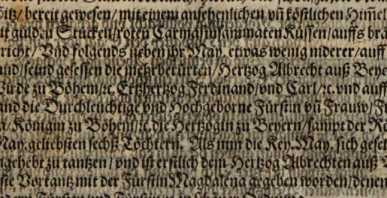 Sitz / bereit gewesen / mit einem ansehenlichen vñ köstlichen Himel
gulden Stucken / roten Carmasinsammaten Küssen / auffs
richt / Vnd folgends neben jhr May. etwas wenig niderer / auff
vnd / seind gesessen die mehrberürten / Hertzog Albrecht auß
zu Böhem / ꝛc. Ertzhertzog Ferdinand / vnd Carl / ꝛc. vnd auff
and die Durchleuchtige vnd Hochgeborne Fürstin vñ Frauw /
Königin zu Böhem / ꝛc. die Hertzogin zu Beyern / sampt der
May. geliebsten sechs Töchtern. Als nun die Key. May. sich gesetzt
angehebt zu tantzen / vnd ist erstlich dem Hertzog Albrechten auß
Vortantz mit der Fürstin Magdalena gegeben worden / denen